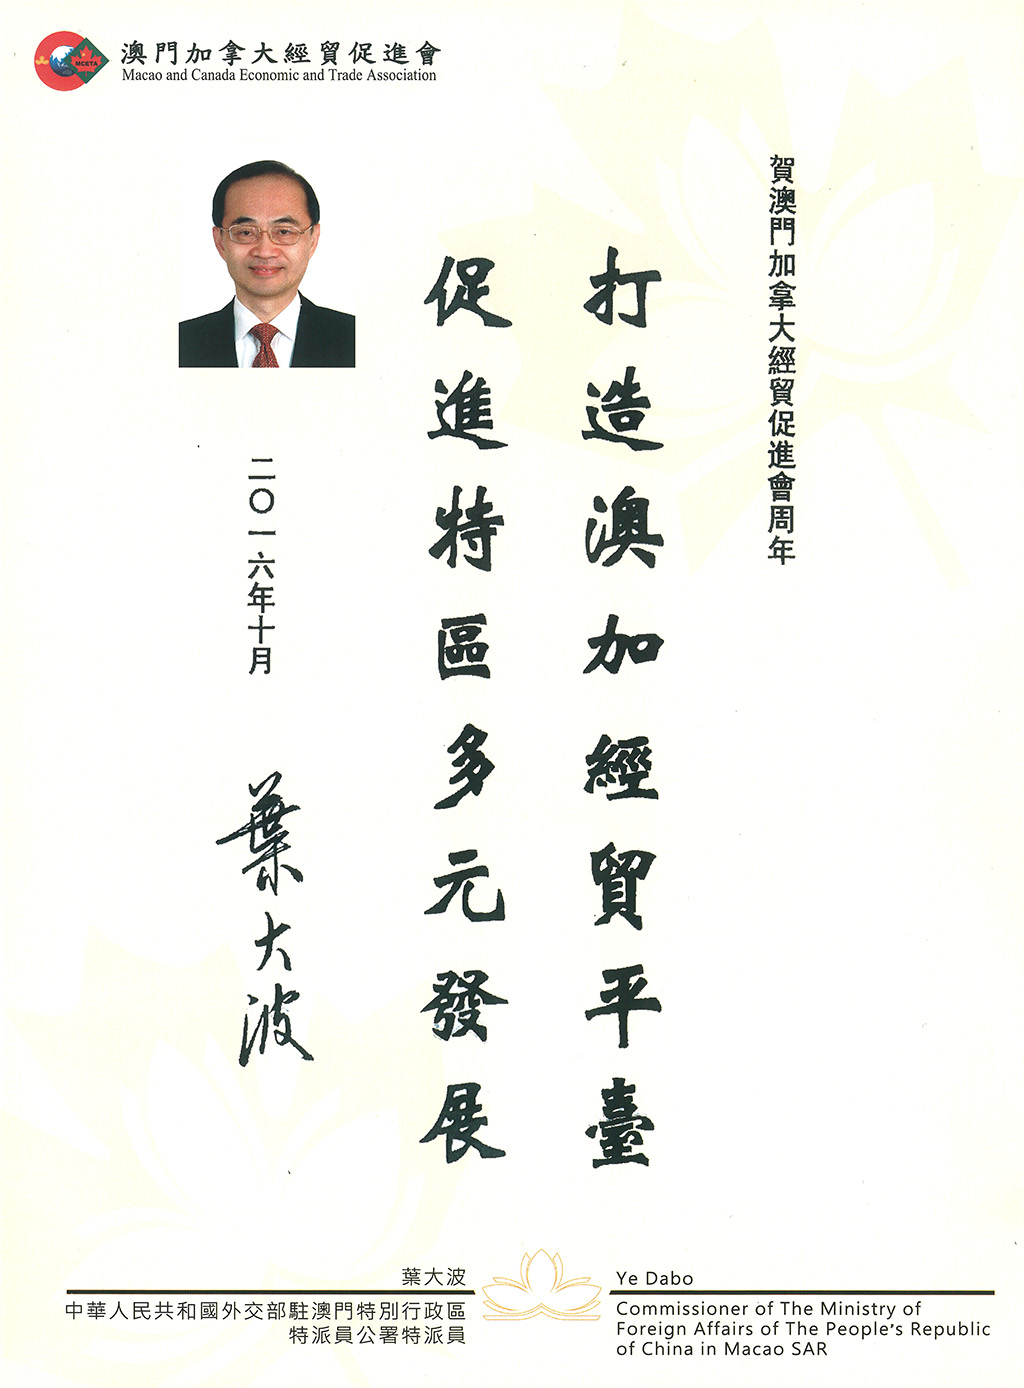 澳門加拿大經貿促進會
Macao and Canada Economic and Trade Association
MCETA
賀澳門加拿大經貿促進會周年
打造澳加經貿平臺
促進特區多元發展
二〇一六年十月
葉大波
葉大波
中華人民共和國外交部駐澳門特別行政區
特派員公署特派員
Ye Dabo
Commissioner of The Ministry of
Foreign Affairs of The People's Republic
of China in Macao SAR